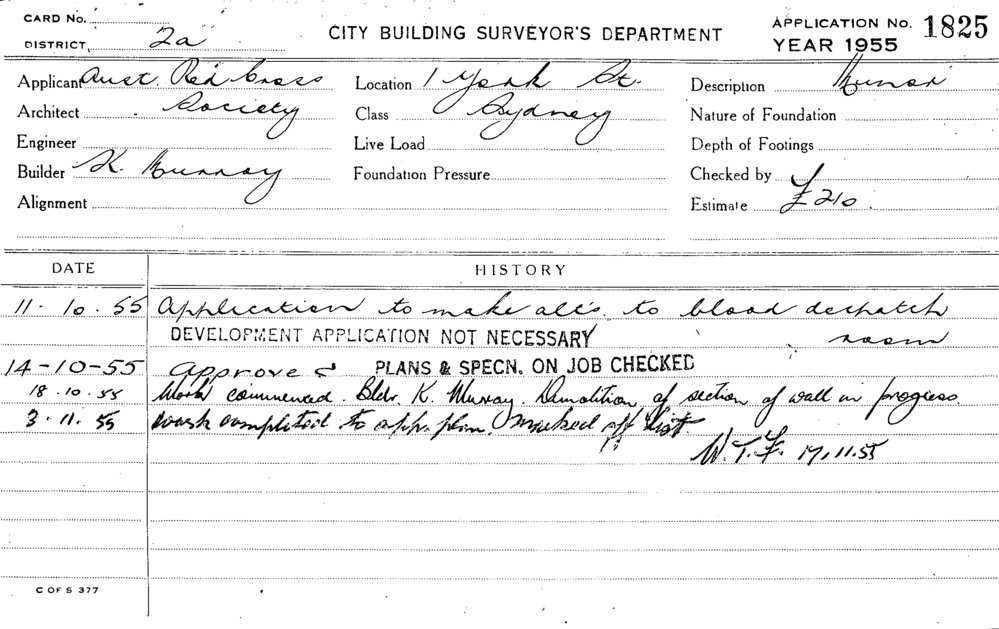 CARD No.
DISTRICT, 2a
CITY BUILDING SURVEYOR'S DEPARTMENT
APPLICATION No. 1825
YEAR 1955
Applicant Aust. Red Cross Location 1 York St. Description Minor
Architect Society Class Sydney Nature of Foundation
Engineer Live Load Depth of Footings
Builder K. Murray Foundation Pressure Checked by
Alignment Estimate £210.
DATE HISTORY
11.10.55 Application to make alts. to blood despatch
DEVELOPMENT APPLICATION NOT NECESSARY room
14-10-55 Approved PLANS & SPECN. ON JOB CHECKED
18.10.55 Work commenced. Bldr. K. Murray. Demolition of section of wall in progress.
3.11.55 work completed to app. plan. marked off list.
W.T.F. 17.11.55
C OF S 377